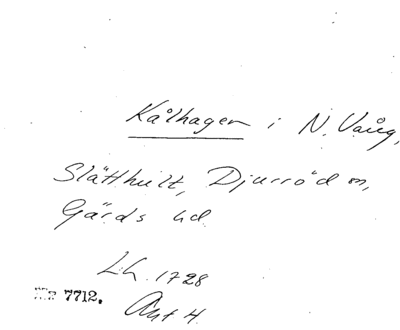 Kålhagen i N. Vång,
Slätthult, Djurröd sn,
Gärds hd
Lh. 1728
7712.
Akt 4